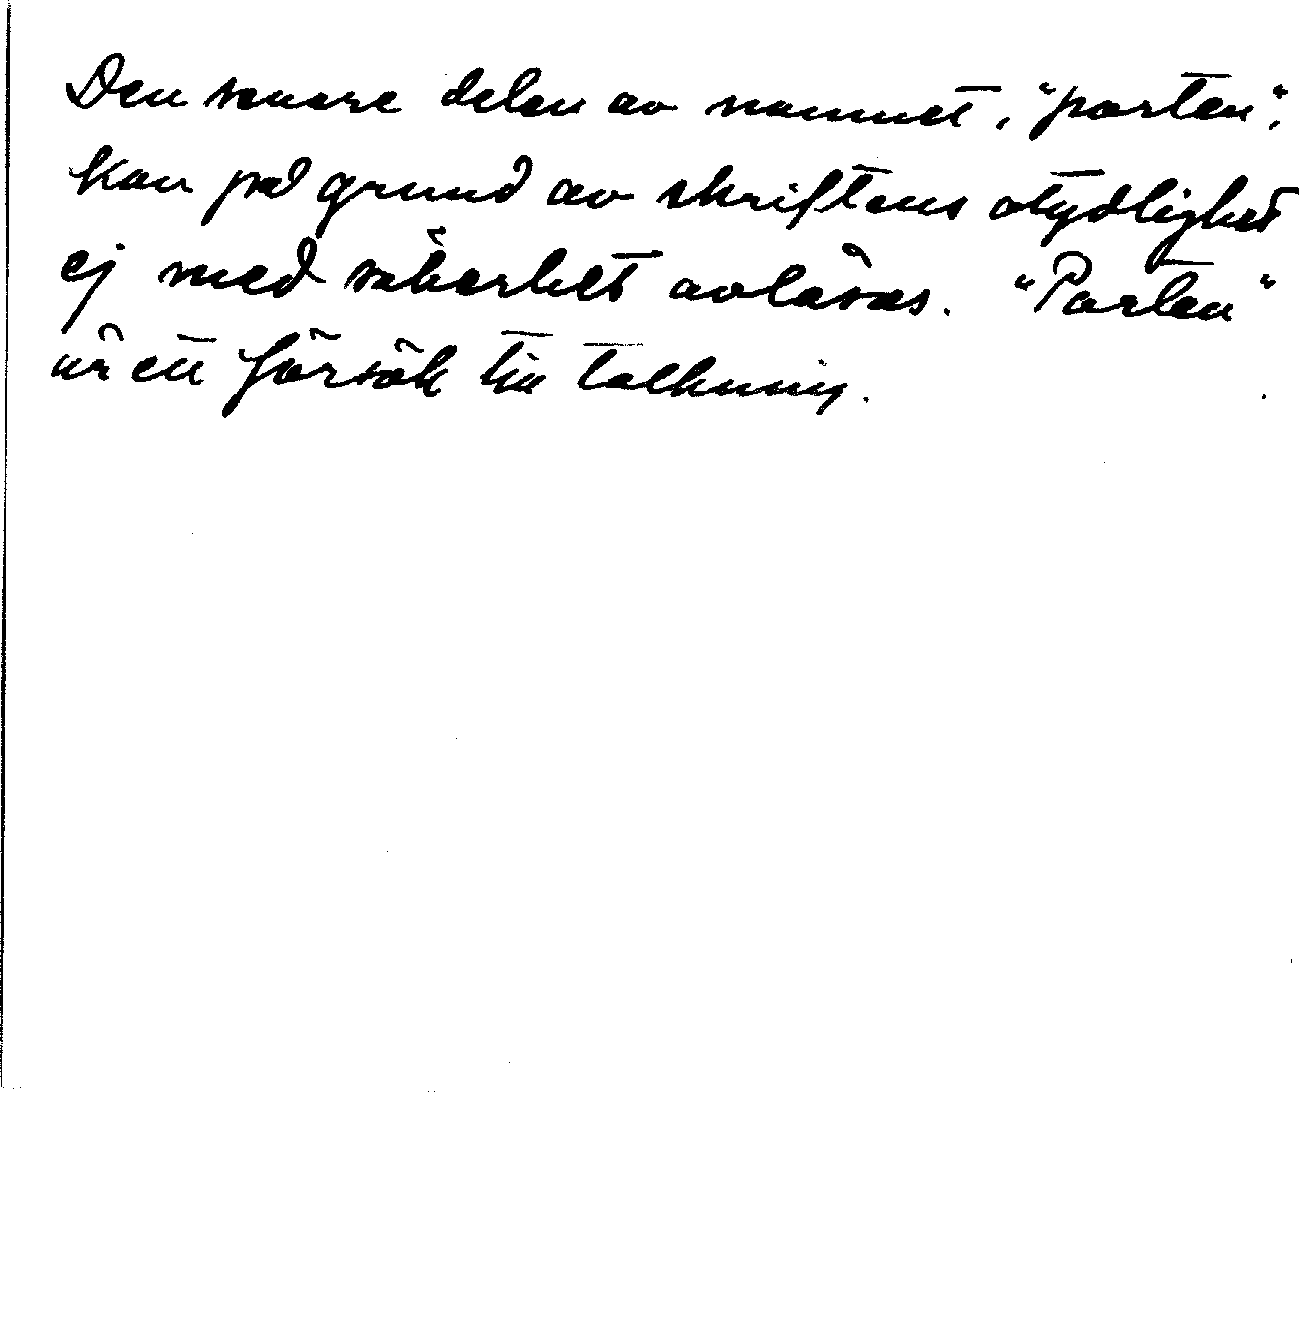 Den senare delen av namnet, "parten",
kan på grund av skriftens otydlighet
ej med säkerhet avläsas. "Parten"
är ett försök till tolkning.